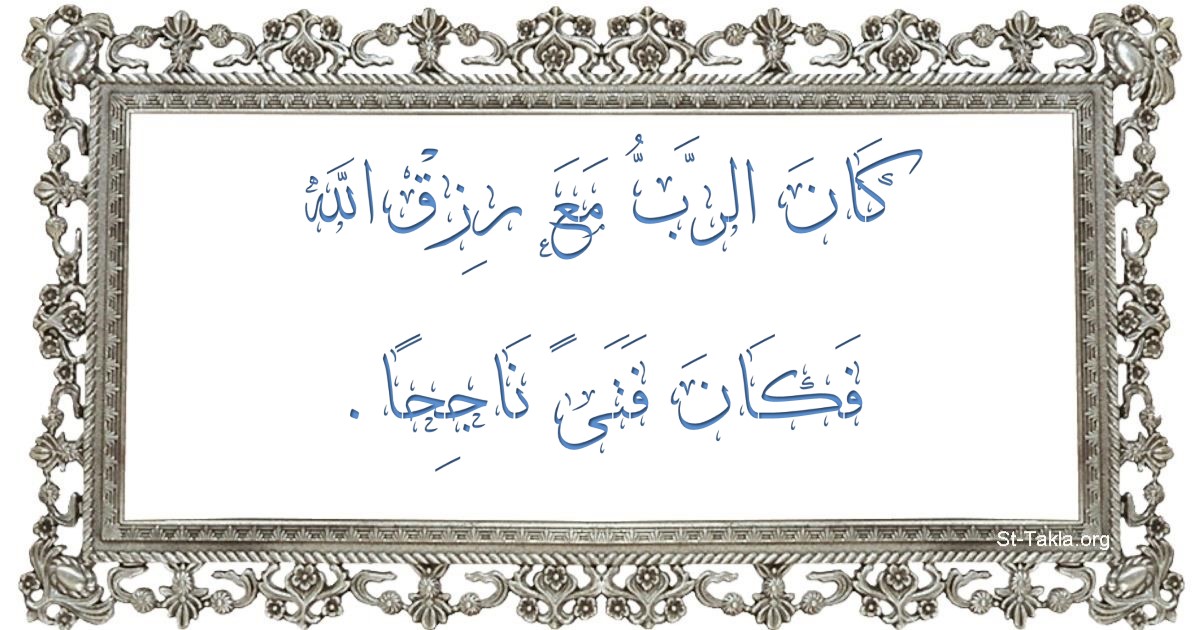 كَانَ الرَّبُّ مَعَ رِزْقْ اللَّهْ
فَكَانَ فَتَىً نَاجِحًا.
St-Takla.org